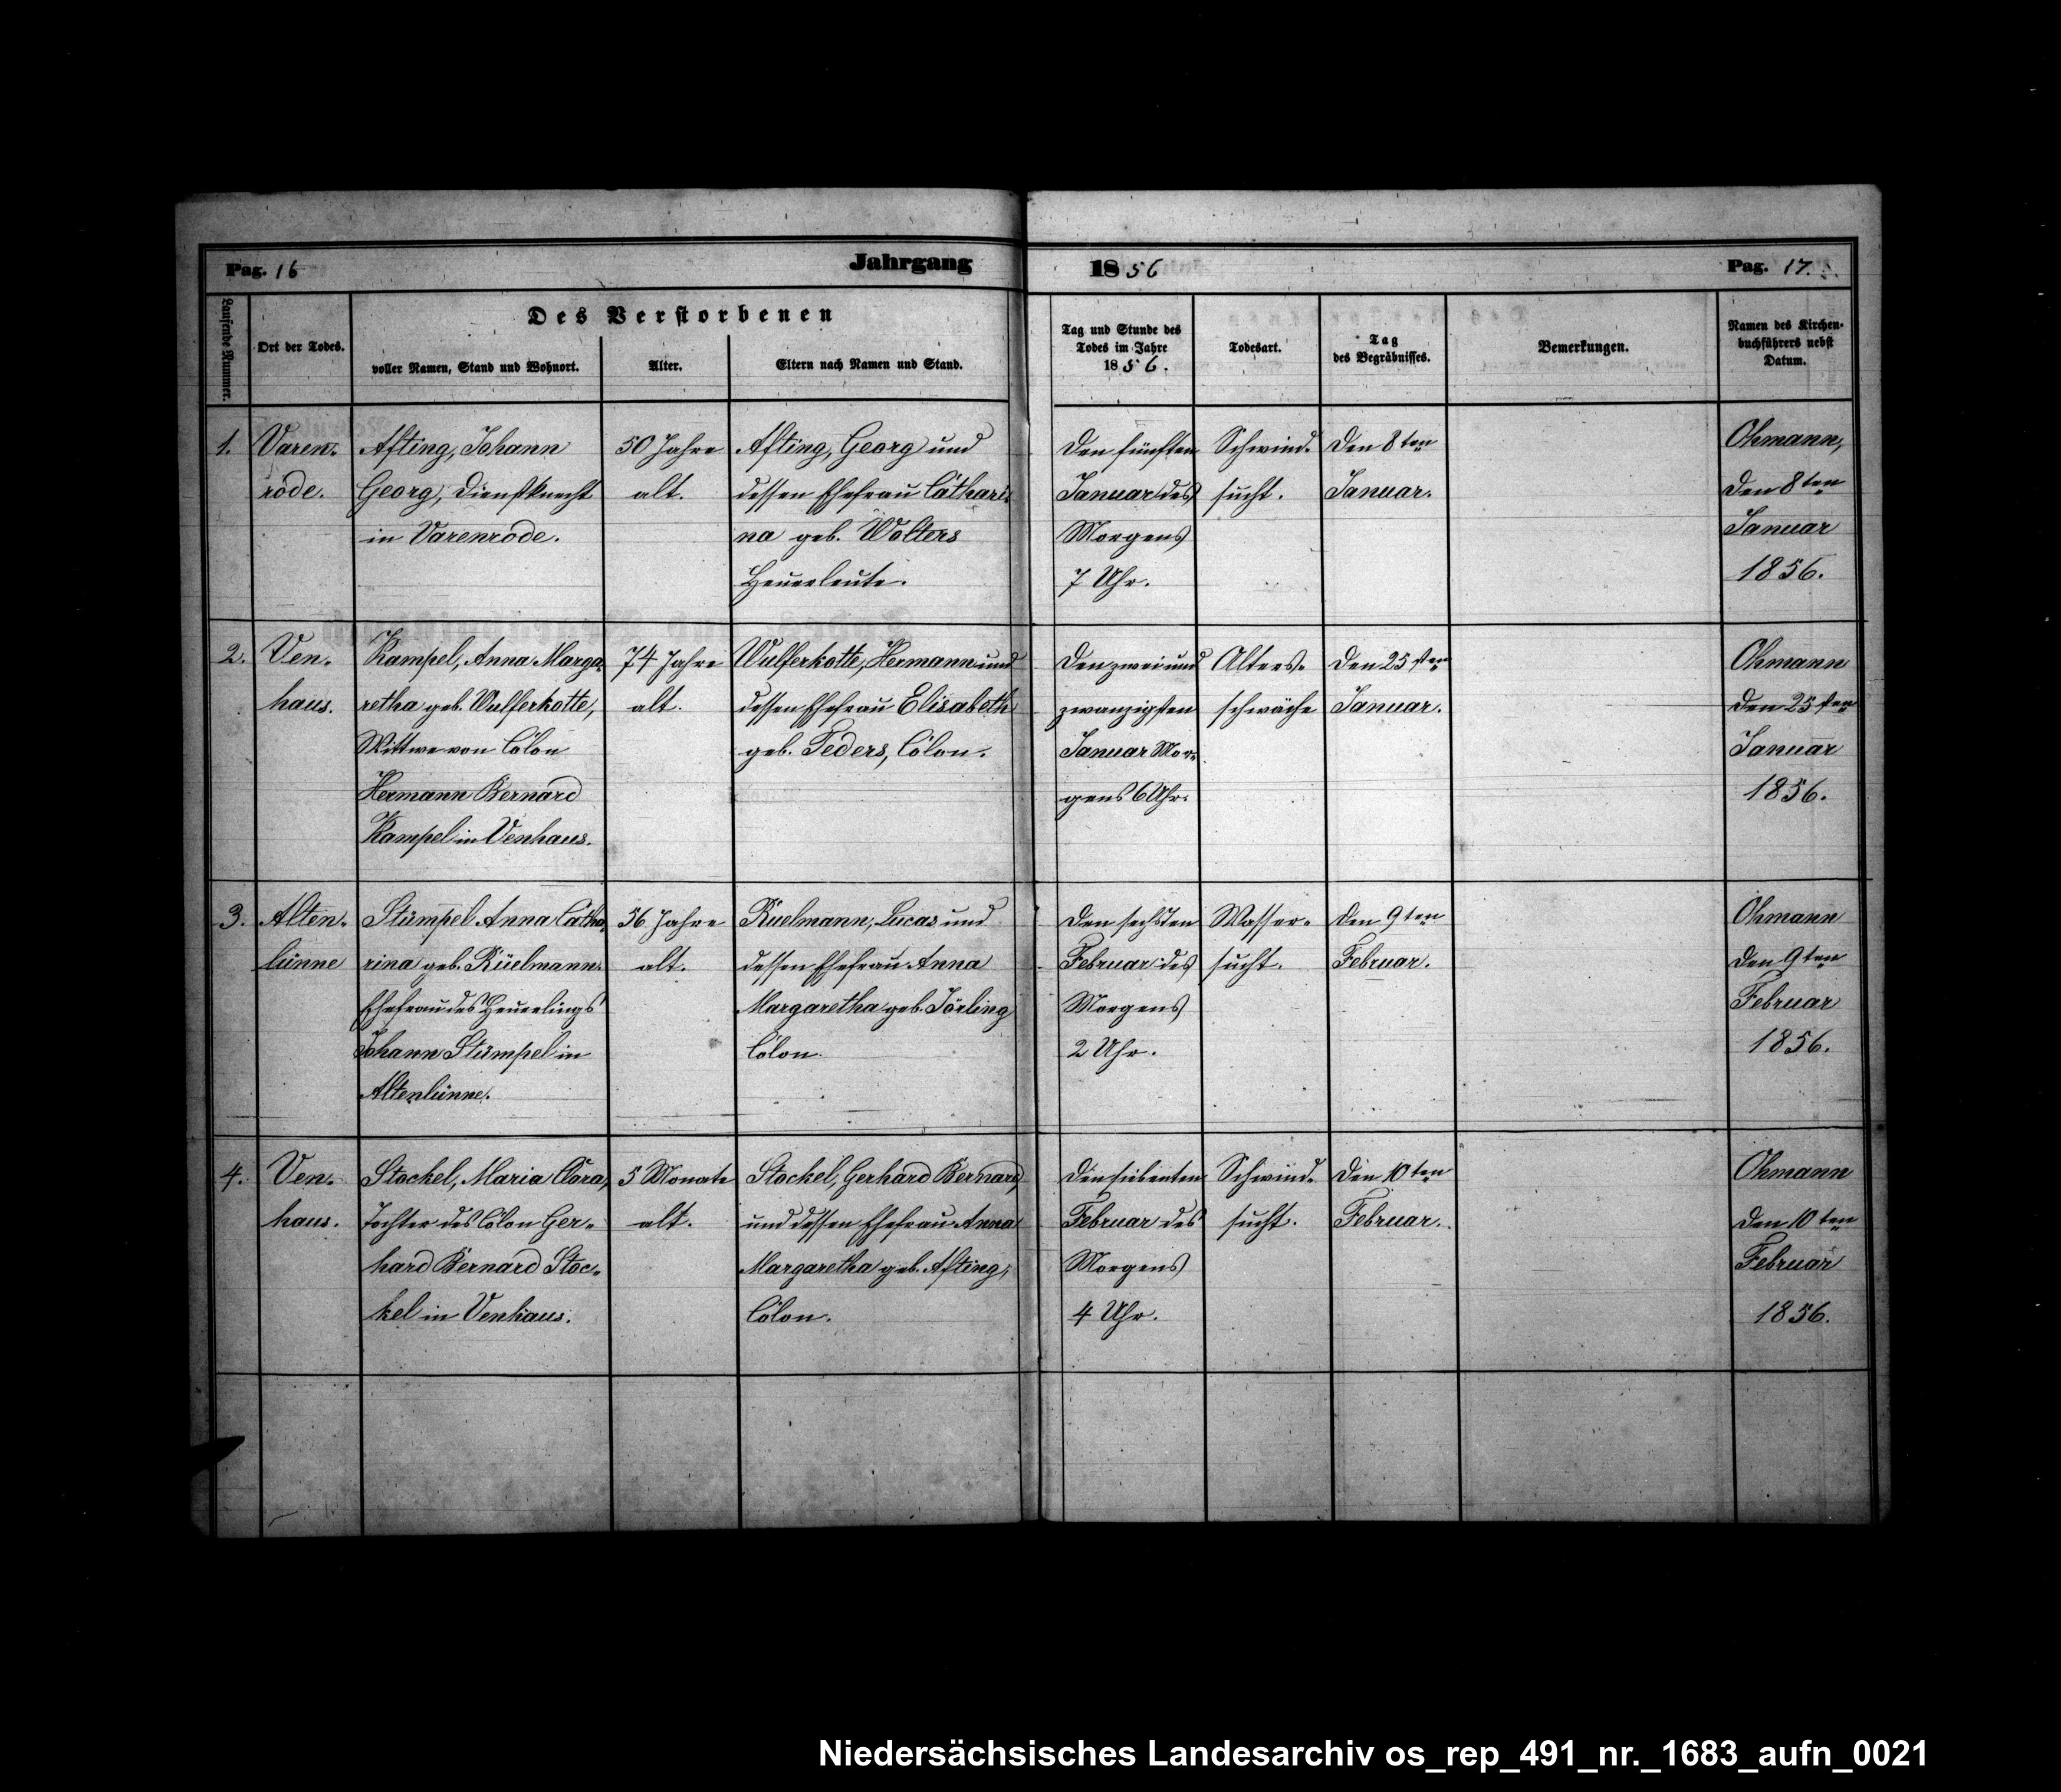 Pag. 16
Jahrgang
1856
Pag. 17.
Laufende Nummer.
Ort der Todes.
Des Verstorbenen
voller Namen, Stand und Wohnort.
Alter.
Eltern nach Namen und Stand.
Tag und Stunde des
Todes im Jahre
1856.
Todesart.
Tag
des Begräbnisses.
Bemerkungen.
Namen des Kirchen-
buchführers nebst
Datum.
1.
Varen-
rode.
Afting, Johann
Georg, Dienstknecht
in Varenrode.
50 Jahre
alt.
Afting, Georg und
dessen Ehefrau Cathari-
na geb. Wolters
Heuerleute.
Den fünften
Januar des
Morgens
7 Uhr.
Schwind-
sucht.
Den 8ten
Januar.
Ohmann,
den 8ten
Januar
1856.
2.
Ven-
haus.
Kampel, Anna Marga-
retha geb. Wulferkotte,
Wittwe von Colon
Hermann Bernard
Kampel in Venhaus.
74 Jahre
alt.
Wulferkotte, Hermann und
dessen Ehefrau Elisabeth
geb. Feders, Colon.
Den zwei und
zwanzigsten
Januar Mor-
gens 6 Uhr.
Alters-
schwäche
Den 25sten
Januar.
Ohmann
den 25sten
Januar
1856.
3.
Alten-
lünne
Stümpel Anna Catha-
rina geb. Rüelmann
Ehefrau des Heuerlings
Johann Stümpel in
Altenlünne.
56 Jahre
alt.
Ruelmann, Lucas und
dessen Ehefrau Anna
Margaretha geb. Jörling
Colon.
Den sechsten
Februar des
Morgens
2 Uhr.
Wasser-
sucht.
Den 9ten
Februar.
Ohmann
den 9ten
Februar
1856.
4.
Ven-
haus.
Stockel, Maria Clara,
Tochter des Colon Ger-
hard Bernard Stoc-
kel in Venhaus.
5 Monate
alt.
Stockel, Gerhard Bernard
und dessen Ehefrau Anna
Margaretha geb. Afting,
Colon.
Den siebenten
Februar des
Morgens
4 Uhr.
Schwind-
sucht.
Den 10ten
Februar.
Ohmann
den 10ten
Februar
1856.
Niedersächsisches Landesarchiv os_rep_491_nr._1683_aufn_0021